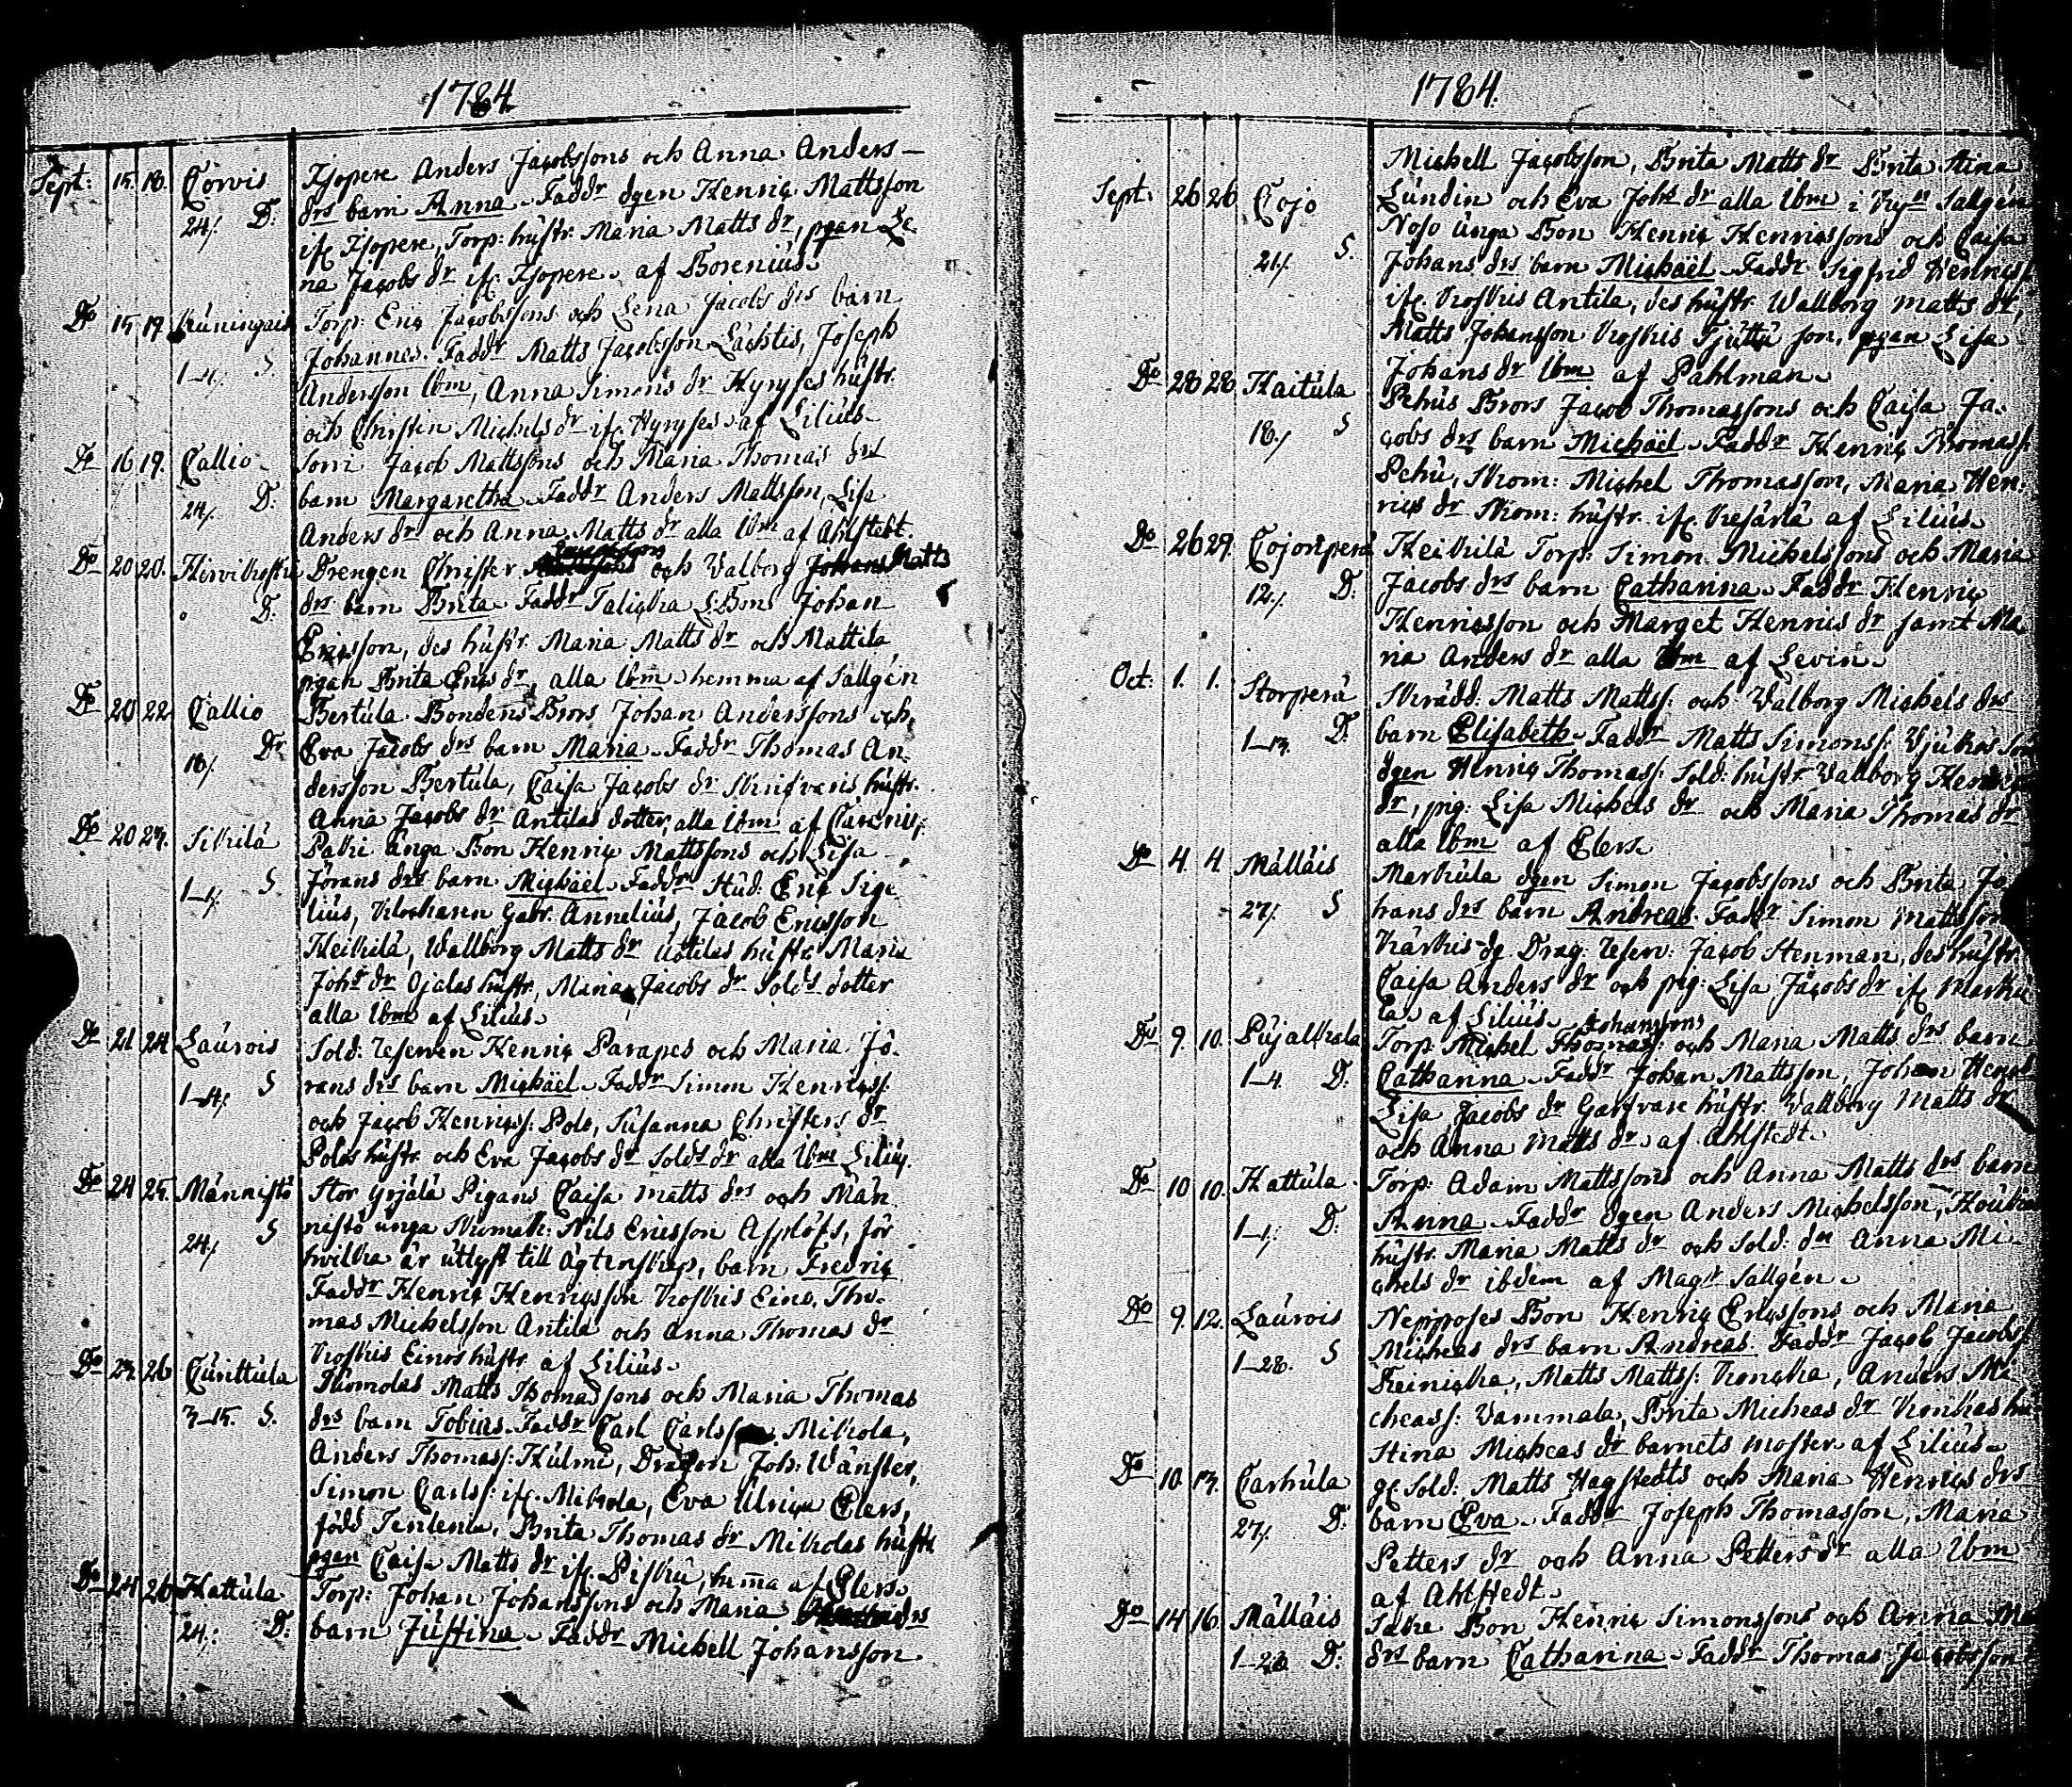 1784
Sept: 15. 18. Corvis Tjopere Anders Jacobssons och Anna Anders-
24/. D. drs barn Anna. Faddr dgen Henric Mattsson
ifr. Tjopere, Torp: hustr. Maria Matts dr, pgan Le-
na Jacobs dr ifr. Tjopere. af Borenius.
Do 15 19. Torp: Eric Jacobssons och Lena Jacobs drs barn
1-4/. S. Johannes. Faddr Matts Jacobsson Lachtis, Joseph
Andersson Ibm, Anna Simons dr Hyryses hustr.
och Christin Michels dr ifr. Hyryses. af Lilius.
Do 16 19. Callio Jacob Mattssons och Maria Thomas drs
24/. D. barn Margaretha. Faddr Anders Mattsson, Lisa
Anders dr och Anna Matts dr alla Ibm af Ahlstedt.
Do 20 20. Drengen Christer och Valborg Johans Matts
D. drs barn Brita. Faddr Johan
Ericsson, des hustr. Maria Matts dr och Mattila
pgan Brita Erics dr, alla Ibm. hemma af Sallgén
Do 20 22 Callio Bertula Bondens Brors Johan Anderssons och
18/. Dr Eva Jacobs drs barn Maria. Faddr Thomas An-
dersson Bertula, Caisa Jacobs dr hustr.
Anna Jacobs dr Antilas dotter, alla Ibm af
Do 20 23. Sikilä unga Bon Henric Mattssons och Lisa
1-1/. S Jörans drs barn Michäel. Faddr Stud. Eric Sige-
lius, Klockaren Gabr. Annelius, Jacob Ericsson
Heikilä, Wallborg Matts dr Uotilas hustr. Maria
Johs dr Ojalas hustr, Maria Jacobs dr Solds dotter
alla Ibm af Lilius.
Do 21 24 Laurois Sold: Reserven Henric Parapes och Maria Jö-
1-4/. S rans drs barn Michäel. Faddr Simon Henricss:
och Jacob Henricss: Polo, Susanna Christers dr
Polos hustr. och Eva Jacobs dr Solds dr alla Ibm Lilius.
Do 24 25. Männistö Stor Yrjälä Pigans Caisa Matts drs och Män-
24/. S nistö unga Skomak: Nils Ericsson Asplöfs, för
hvilka är utlyst till ägtenskap, barn Fredric
Faddr Henric Henricsson Koskis Eino, Tho-
mas Michelsson Antila och Anna Thomas dr
Koskis Einos hustr. af Lilius.
Do 23. 26 Curittula Thomolas Matts Thomassons och Maria Thomas
3-15. S. drs barn Tobias. Faddr Carl Carlsson Mikola,
Anders Thomass: Hulmi, Dragon Joh: Wänster,
Simon Carlss: ifr. Mikola, Eva Ulrica Elers,
född Tenlenia, Brita Thomas dr Mikolas hustr.
pgan Caisa Matts dr ifr. Piskü, hema af Elers.
Do 24 26 Hattula Torp: Johan Johanssons och Maria
24/. D. barn Justina. Faddr Michell Johansson
1784.
Michell Jacobsson, Brita Matts dr Brita Stina
Sept: 26 26 Cojo Lundin och Eva Johs dr alla Ibm i Kyrn Sallgén
21/. S. Noso unga Bon Henric Henricssons och Caisa
Johans drs barn Michäel. Faddr Sigfrid Henricss:
ifr. Koskis Antila, des hustr. Wallborg Matts dr,
Matts Johansson Koskis son, pgan Lisa
Johans dr Ibm af Pahlman.
Do 28 28 Haitula Pehus Brors Jacob Thomassons och Caisa Ja-
18./ S cobs drs barn Michäel. Faddr Henric Thomass:
Pehu, Skom: Michel Thomasson, Maria Hen-
rics dr Skom: hustr. ifr. af Lilius.
Do 26 29. Cojonperä Heikilä Torp: Simon Michelssons och Maria
12./ D. Jacobs drs barn Catharina. Faddr Henric
Henricsson och Marget Henrics dr samt Ma-
ria Anders dr alla Ibm af Levin.
Oct: 1. 1. Storperä Skrädd: Matts Mattss: och Valborg Michels drs
1-13. D. barn Elisabeth. Faddr Matts Simonss:
dgen Henric Thomass: Sold: hustr. Wallborg Henrics
dr, pig: Lisa Michels dr och Maria Thomas dr
alla Ibm af Elers.
Do 4. 4. Mälläis Markula dgen Simon Jacobssons och Brita Jo-
27/. S hans drs barn Andreas. Faddr Simon Mattsson
Drag: Reserv: Jacob Stenman, des hustr.
Caisa Anders dr och pig: Lisa Jacobs dr ifr Marku-
la. af Lilius.
Do 9. 10. Pujalkala Torp: Michel Thomass: Johanssons och Maria Matts drs barn
1-4. D. Catharina. Faddr Johan Mattsson, Johan
Lisa Jacobs dr Garfvare hustr. Wallborg Matts dr
och Anna Matts dr. af Ahlstedt.
Do 10 10. Hattula. Torp: Adam Mattssons och Anna Matts drs barn
1-1/. D. Anna. Faddr dgen Anders Michelsson,
hustr. Maria Matts dr och Sold: drn Anna Mi-
chels dr ibdem af Magr Sallgén.
Do 9. 12. Laurois Nepposes Bon Henric Ericssons och Maria
1-28. S Micheas drs barn Andreas. Faddr Jacob Jacobss:
Reinicka, Matts Mattss: Anders Mi-
cheass: Vammala, Brita Micheas dr
Stina Micheas dr barnets moster. af Lilius.
Do 10. 13. Carhula gl. Sold: Matts Hagstedts och Maria Henrics drs
27/. D. barn Eva. Faddr Joseph Thomasson, Maria
Petters dr och Anna Petters dr alla Ibm
af Ahlstedt.
Do 14 16. Mälläis Bon Henric Simonssons och Anna
1-28. D. drs barn Catharina. Faddr Thomas Jacobsson